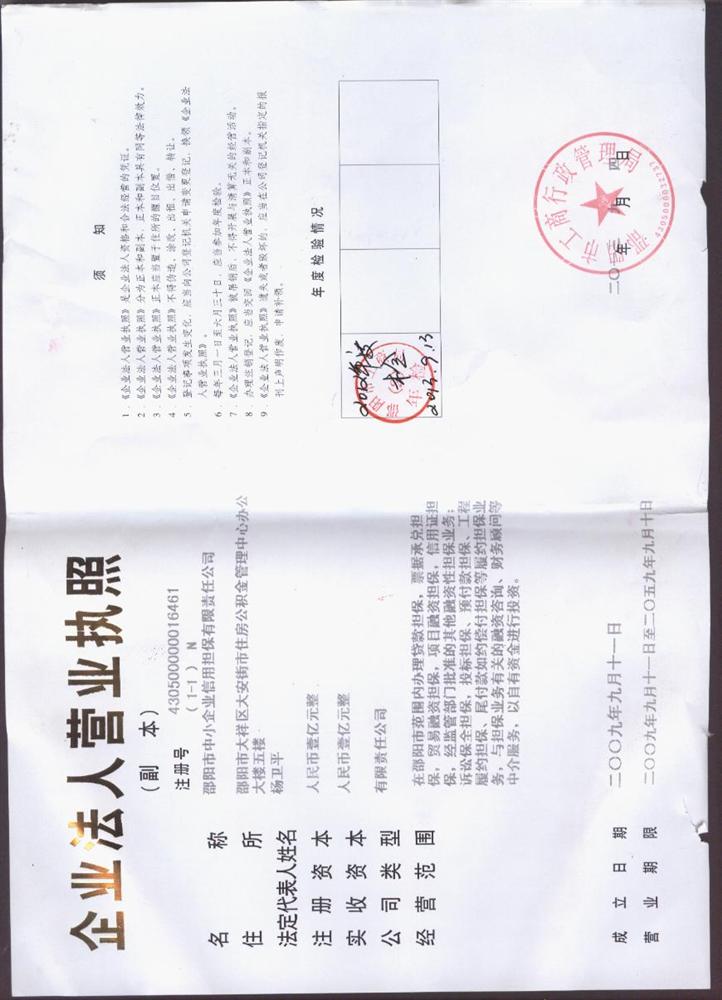 企业法人营业执照
(副 本)
注册号 430500000016461
(1-1) N
名 称 邵阳市中小企业信用担保有限责任公司
住 所 邵阳市大祥区大安街市住房公积金管理中心办公
大楼五楼
法定代表人姓名 杨卫平
注册资本 人民币壹亿元整
实收资本 人民币壹亿元整
公司类型 有限责任公司
经营范围 在邵阳市范围内办理贷款担保,票据承兑担
保,贸易融资担保,项目融资担保,信用证担
保,经监管部门批准的其他融资性担保业务;
诉讼保全担保,投标担保、预付款担保、工程
履约担保、尾付款如约偿付担保等履约担保业
务,与担保业务有关的融资咨询、财务顾问等
中介服务,以自有资金进行投资。
成立日期 二〇〇九年九月十一日
营业期限 二〇〇九年九月十一日至二〇五九年九月十日
须 知
1.《企业法人营业执照》是企业法人资格和合法经营的凭证。
2.《企业法人营业执照》分为正本和副本,正本和副本具有同等法律效力。
3.《企业法人营业执照》正本应当置于住所的醒目位置。
4.《企业法人营业执照》不得伪造、涂改、出租、出借、转让。
5.登记事项发生变化,应当向公司登记机关申请变更登记,换领《企业法
人营业执照》。
6.每年三月一日至六月三十日,应当参加年度检验。
7.《企业法人营业执照》被吊销后,不得开展与清算无关的经营活动。
8.办理注销登记,应当交回《企业法人营业执照》正本和副本。
9.《企业法人营业执照》遗失或者毁坏的,应当在公司登记机关指定的报
刊上声明作废,申请补领。
年度检验情况
年检
2013.9.13
邵阳市工商行政管理局
二〇 年 月 四日
4305000032737